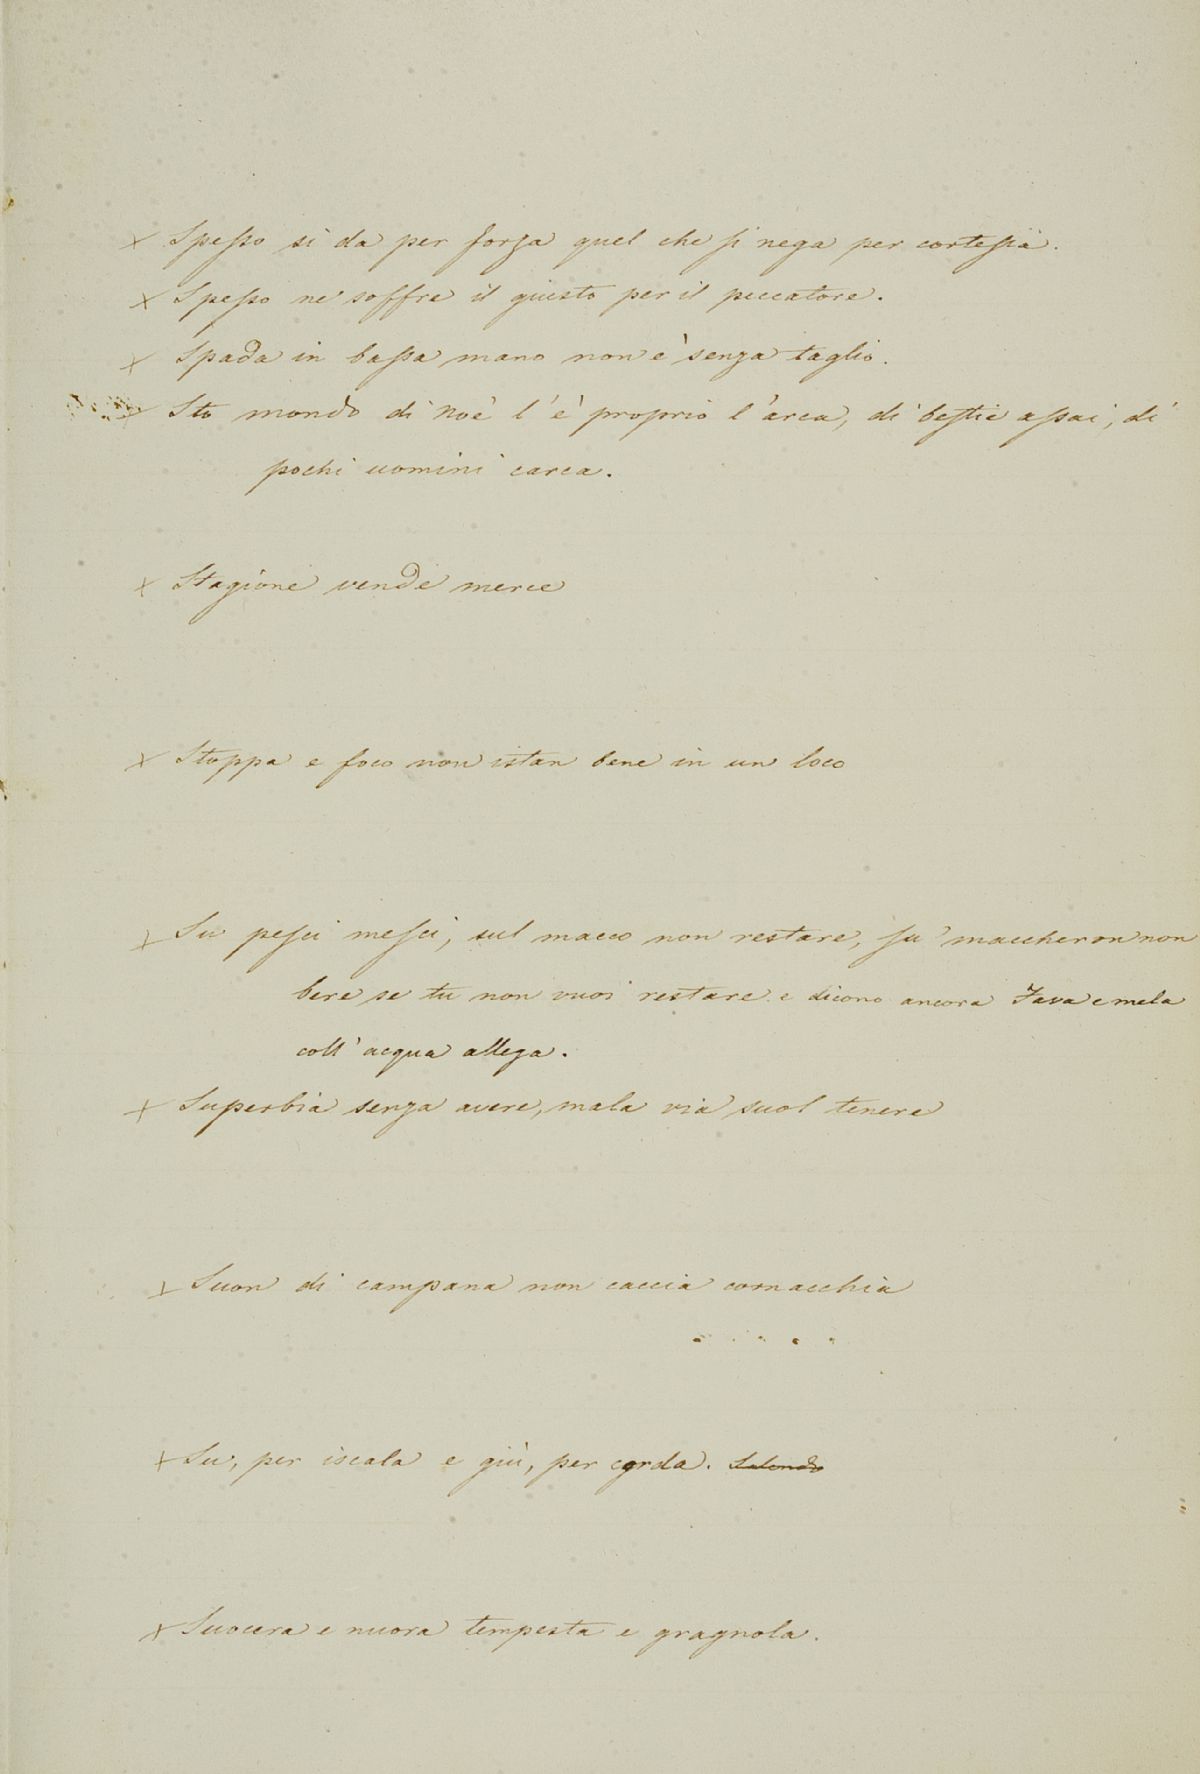 × Spesso si da per forza quel che si nega per cortesia.
× Spesso ne soffre il giusto per il peccatore.
× Spada in bassa mano non è senza taglio.
× Sto mondo di Noè l'è proprio l'arca, di bestie assai, di
pochi uomini carca.
× Stagione vende merce
× Stoppa e foco non istan bene in un loco
× Su pesci mesci, sul macco non restare, su' maccheron non
bere se tu non vuoi restare e dicono ancora Fava e mela
coll'acqua allega.
× Superbia senza avere, mala via suol tenere
× Suon di campana non caccia cornacchia
× Su, per iscala e giù, per corda.
× Suocera e nuora tempesta e gragnola.